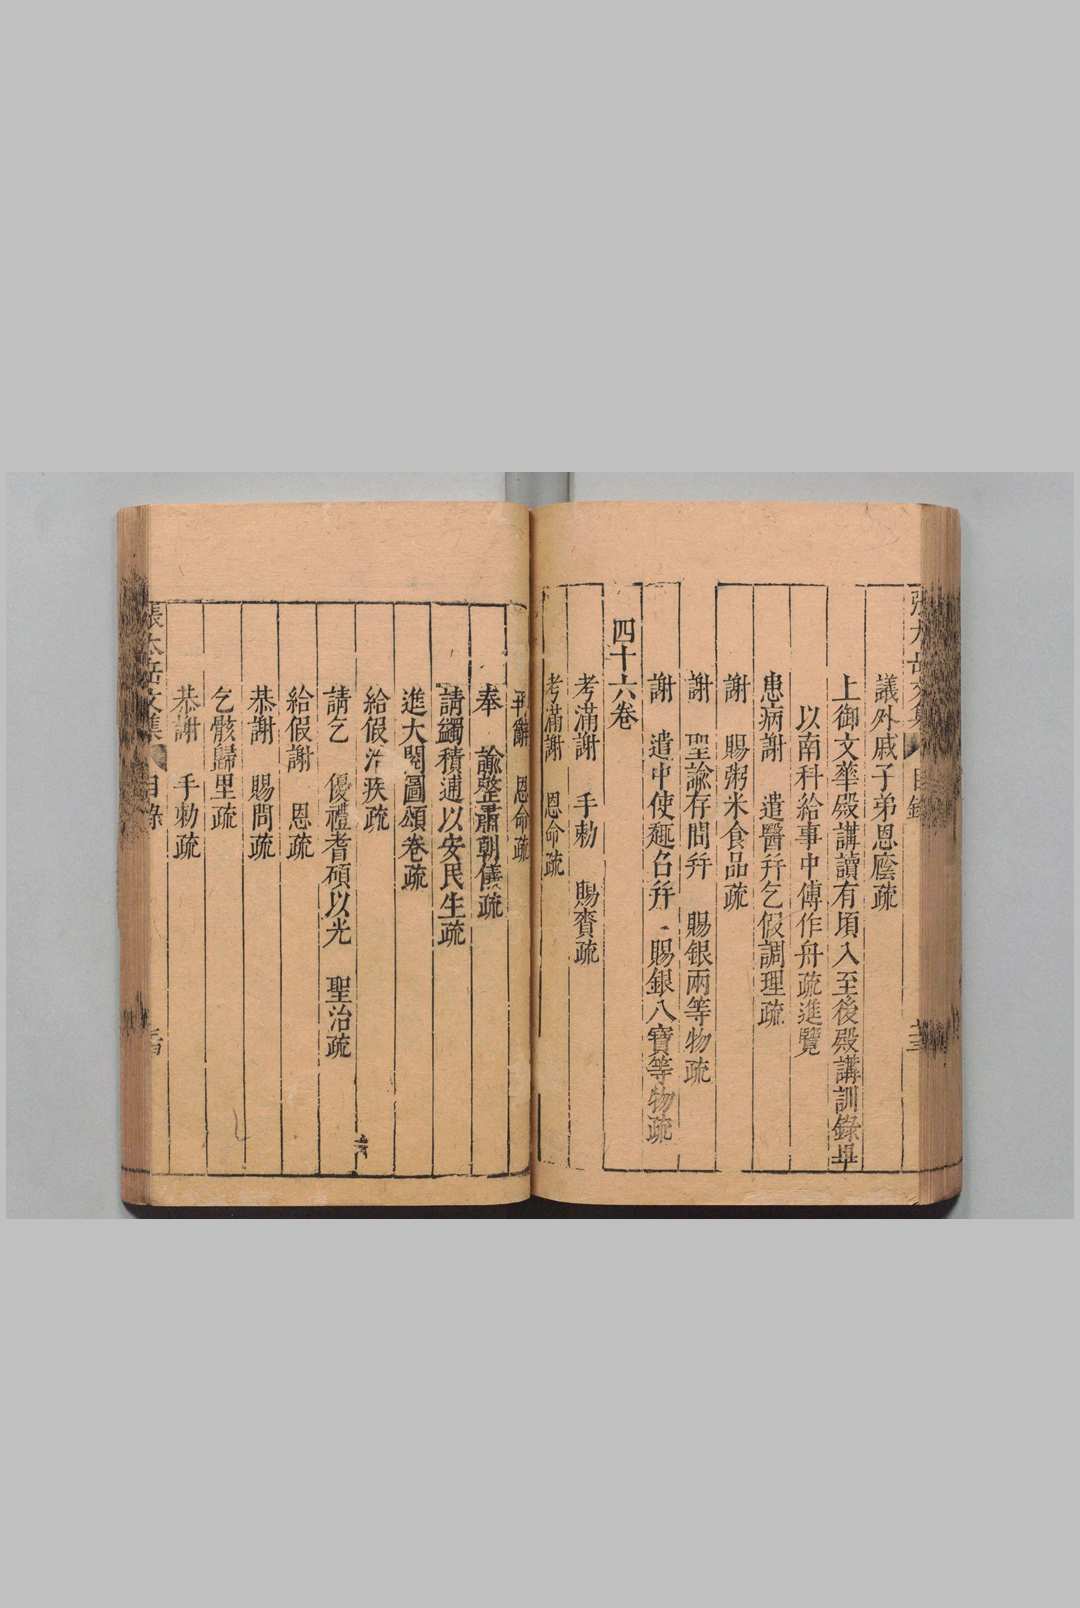 張太岳文集 目錄
議外戚子弟恩廕疏
上御文華殿講讀有頃入至後殿講訓錄畢
以南科給事中傅作舟疏進覽
患病謝 遣醫幷乞假調理疏
謝 賜粥米食品疏
謝 聖諭存問幷 賜銀兩等物疏
謝 遣中使趣召幷 賜銀八寶等物疏
四十六卷
考滿謝 手勅 賜賚疏
考滿謝 恩命疏
再辭 恩命疏
奉 諭整肅朝儀疏
請蠲積逋以安民生疏
進大閱圖頌卷疏
給假治疾疏
請乞 優禮耆碩以光 聖治疏
給假謝 恩疏
恭謝 賜問疏
乞骸歸里疏
恭謝 手勅疏
張太岳文集 目錄